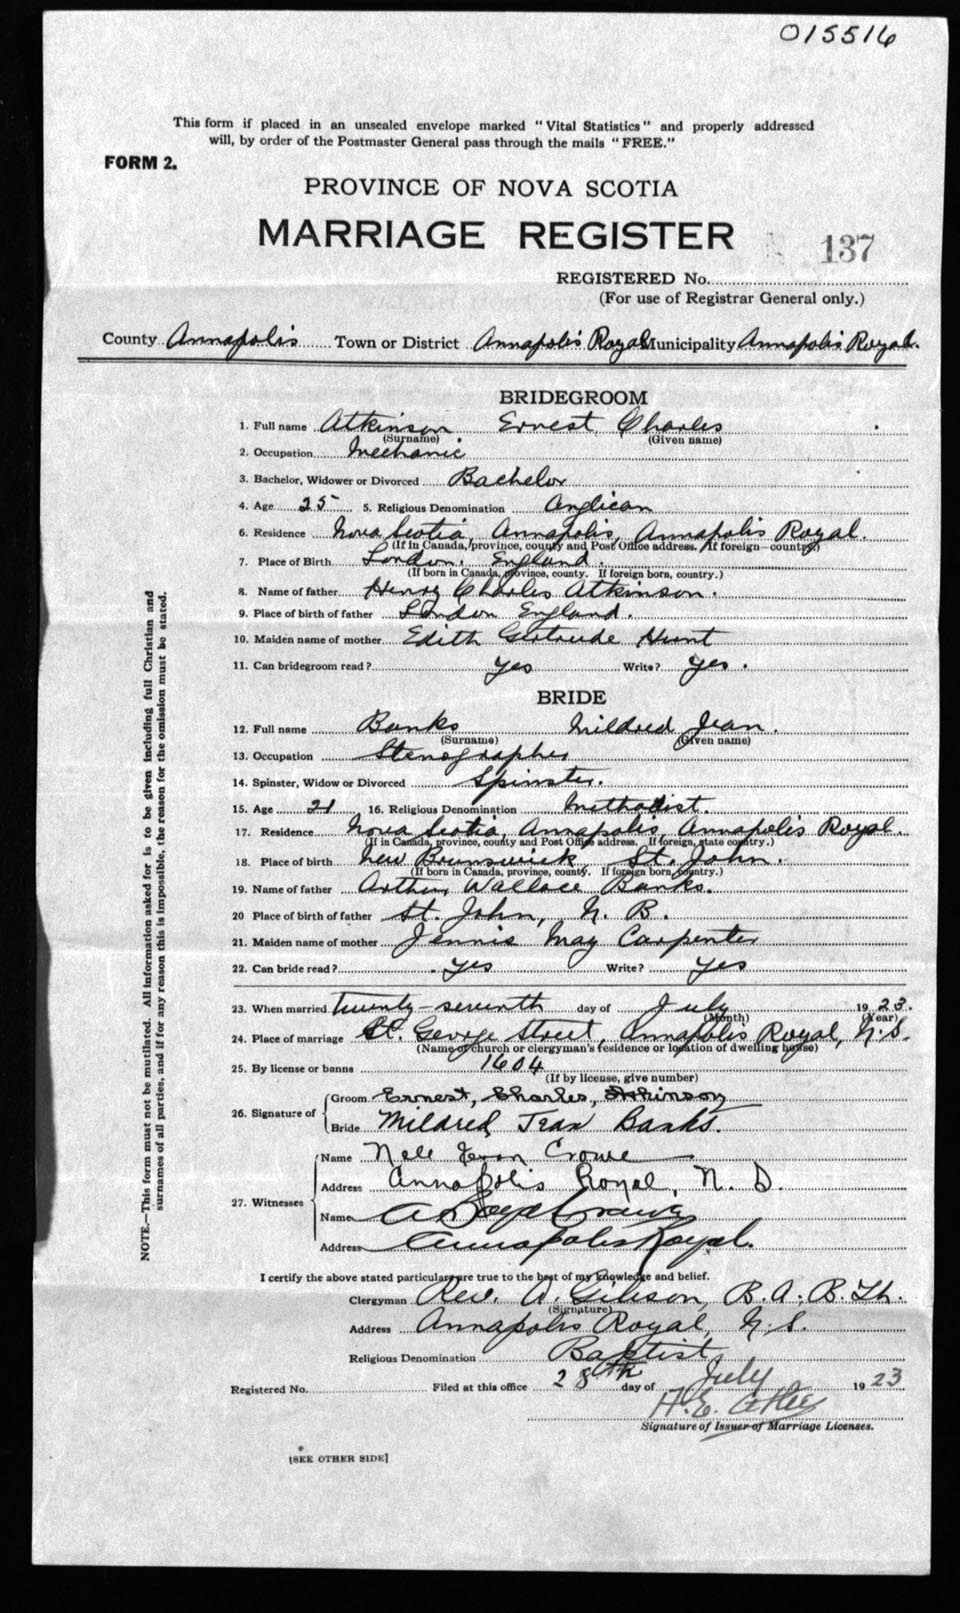 015516
This form if placed in an unsealed envelope marked "Vital Statistics" and properly addressed
will, by order of the Postmaster General pass through the mails "FREE."
FORM 2.
PROVINCE OF NOVA SCOTIA
MARRIAGE REGISTER
137
REGISTERED No.
(For use of Registrar General only.)
County Annapolis Town or District Annapolis Royal Municipality Annapolis Royal.
BRIDEGROOM
1. Full name Atkinson Ernest Charles
(Surname) (Given name)
2. Occupation Mechanic
3. Bachelor, Widower or Divorced Bachelor
4. Age 25 5. Religious Denomination Anglican
6. Residence Nova Scotia, Annapolis, Annapolis Royal.
(If in Canada, province, county and Post Office address. If foreign country)
7. Place of Birth London, England.
(If born in Canada, province, county. If foreign born, country.)
8. Name of father Henry Charles Atkinson.
9. Place of birth of father London England.
10. Maiden name of mother Edith Gertrude Hunt
11. Can bridegroom read? yes Write? yes.
BRIDE
12. Full name Banks Mildred Jean.
(Surname) (Given name)
13. Occupation Stenographer
14. Spinster, Widow or Divorced Spinster.
15. Age 21 16. Religious Denomination Methodist.
17. Residence Nova Scotia, Annapolis, Annapolis Royal.
(If in Canada, province, county and Post Office address. If foreign, state country.)
18. Place of birth New Brunswick, St. John.
(If born in Canada, province, county. If foreign born, country.)
19. Name of father Arthur Wallace Banks.
20 Place of birth of father St. John, N. B.
21. Maiden name of mother Jennie May Carpenter
22. Can bride read? yes Write? yes
23. When married twenty-seventh day of July 1923.
(Month) (Year)
24. Place of marriage St. George Street, Annapolis Royal, N.S.
(Name of church or clergyman's residence or location of dwelling house)
25. By license or banns 1604
(If by license, give number)
26. Signature of Groom Ernest, Charles, Atkinson
Bride Mildred Jean Banks.
27. Witnesses Name Nell Crowe
Address Annapolis Royal, N.S.
Name A Boyd
Address Annapolis Royal.
I certify the above stated particulars are true to the best of my knowledge and belief.
Clergyman Rev. A. Gibson, B.A; B.Th.
(Signature)
Address Annapolis Royal, N.S.
Religious Denomination Baptist
Registered No. Filed at this office 28th day of July 1923
H.E.
Signature of Issuer of Marriage Licenses.
[SEE OTHER SIDE]
NOTE.—This form must not be mutilated. All information asked for is to be given including full Christian and
surnames of all parties, and if for any reason this is impossible, the reason for the omission must be stated.